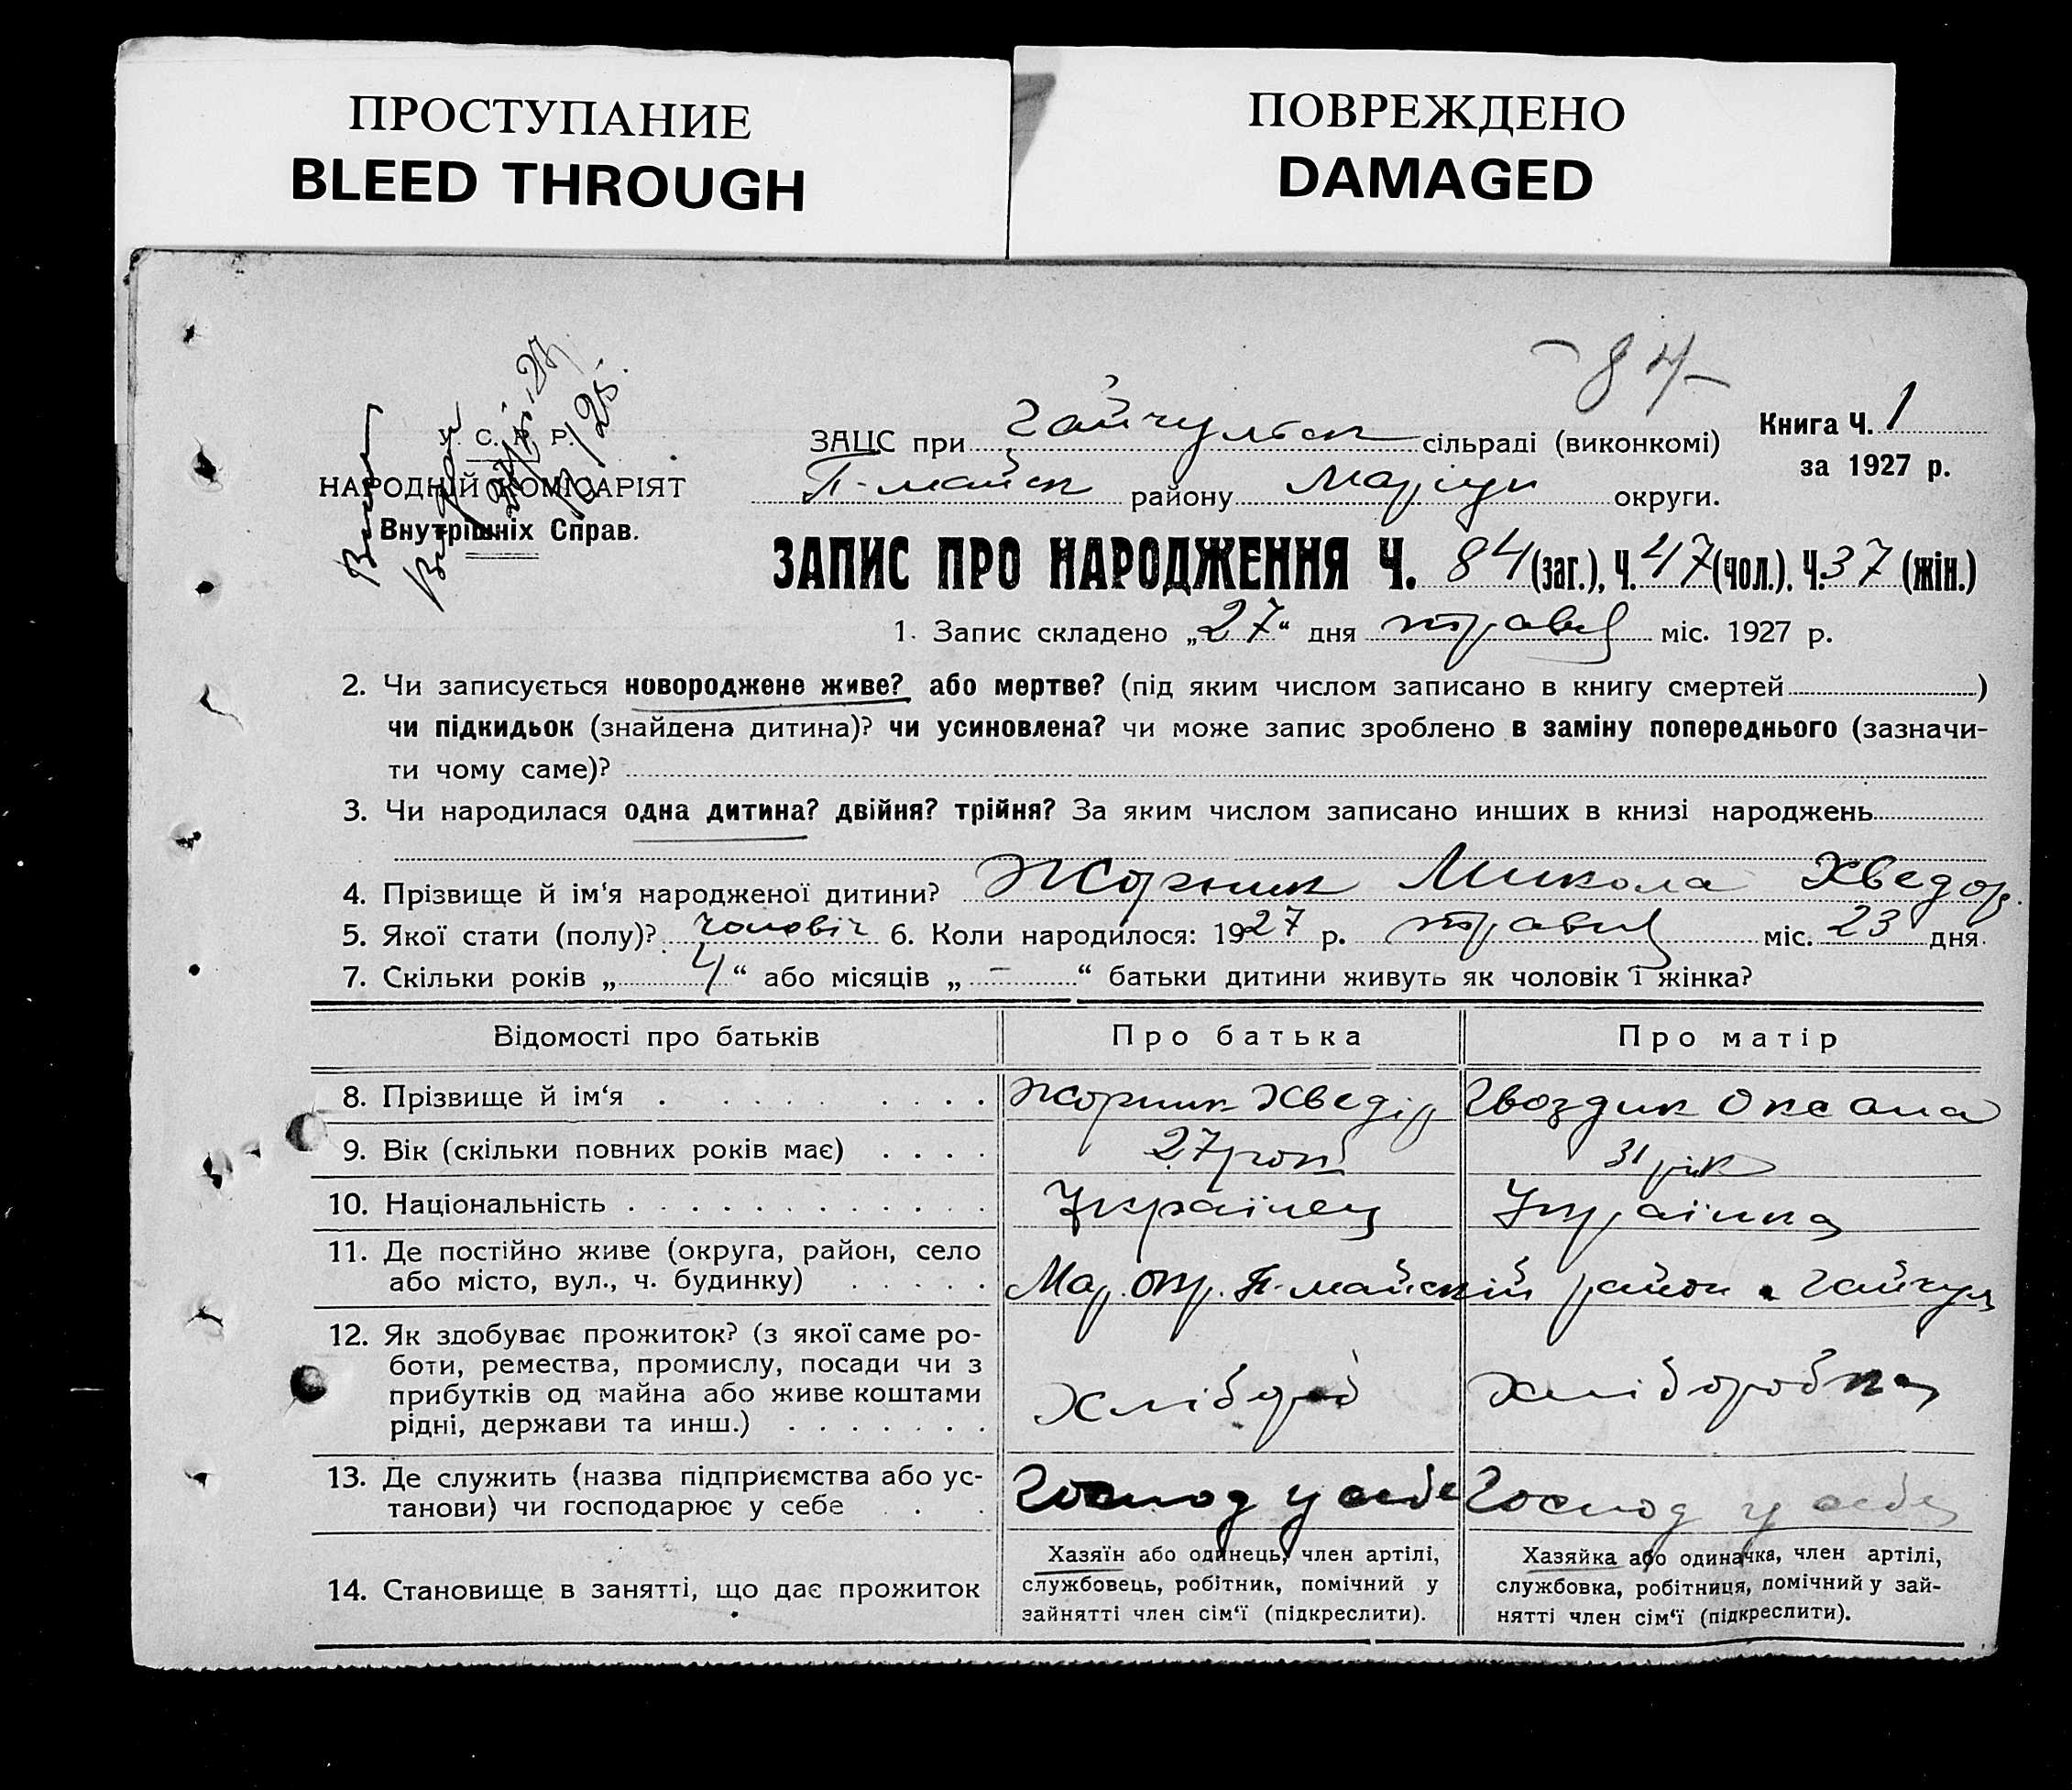 ПРОСТУПАНИЕ
BLEED THROUGH
ПОВРЕЖДЕНО
DAMAGED
-84-
У. С. Р. Р.
НАРОДНІЙ КОМІСАРІЯТ
Внутрішніх Справ.
ЗАЦС при Гайчульск сільраді (виконкомі)
Книга Ч. 1
за 1927 р.
П-майск району Маріуп округи.
ЗАПИС ПРО НАРОДЖЕННЯ Ч. 84 (заг.), Ч. 47 (чол.), Ч. 37 (жін.)
1. Запис складено „27“ дня травня міс. 1927 р.
2. Чи записується новороджене живе? або мертве? (під яким числом записано в книгу смертей)
чи підкидьок (знайдена дитина)? чи усиновлена? чи може запис зроблено в заміну попереднього (зазначи-
ти чому саме)?
3. Чи народилася одна дитина? двійня? трійня? За яким числом записано инших в книзі народжень
4. Прізвище й ім‘я народженої дитини? Жорник Микола Хведор.
5. Якої стати (полу)? чоловіч 6. Коли народилося: 1927 р. травня міс. 23 дня.
7. Скільки років „4“ або місяців „-“ батьки дитини живуть як чоловік і жінка?
Відомості про батьків Про батька Про матір
8. Прізвище й ім‘я Жорник Хведір Гвоздик Оксана
9. Вік (скільки повних років має) 27 рокі 31 рік
10. Національність Українец Українка
11. Де постійно живе (округа, район, село
або місто, вул., ч. будинку) Мар. окр. П-майский район Гайчул
12. Як здобуває прожиток? (з якої саме ро-
боти, ремества, промислу, посади чи з
прибутків од майна або живе коштами
рідні, держави та инш.) Хлібороб Хлiборобка
13. Де служить (назва підприємства або ус-
танови) чи господарює у себе Господ у себе Господ у себе
14. Становище в занятті, що дає прожиток
Хазяїн або одинець, член артілі,
службовець, робітник, помічний у
зайнятті член сім‘ї (підкреслити).
Хазяйка або одиначка, член артілі,
службовка, робітниця, помічний у зай-
нятті член сім‘ї (підкреслити).